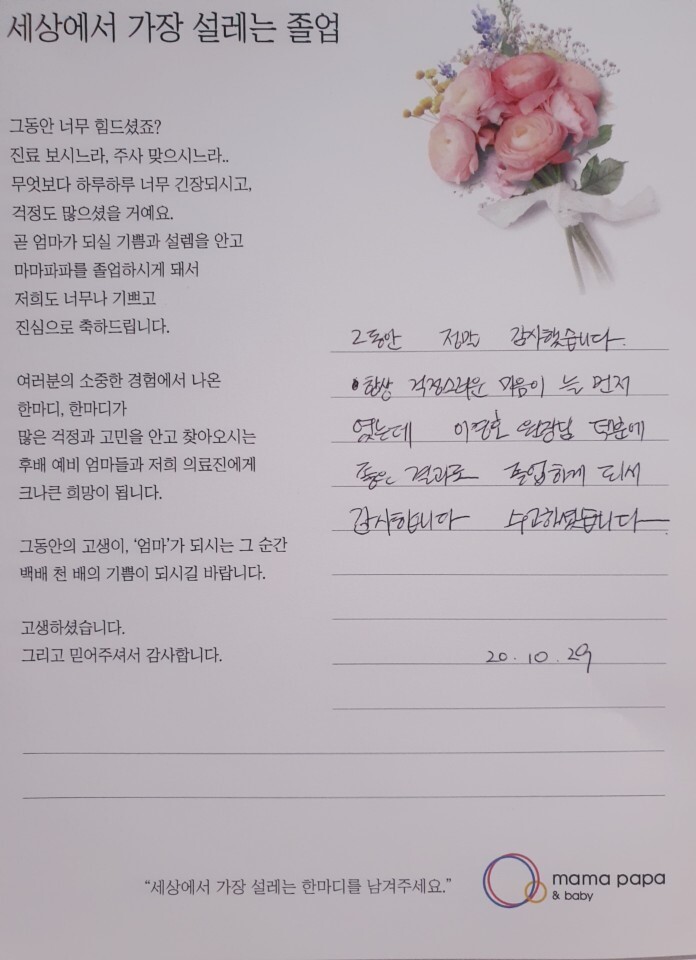 세상에서 가장 설레는 졸업
그동안 너무 힘드셨죠?
진료 보시느라, 주사 맞으시느라..
무엇보다 하루하루 너무 긴장되시고,
걱정도 많으셨을 거예요.
곧 엄마가 되실 기쁨과 설렘을 안고
마마파파를 졸업하시게 돼서
저희도 너무나 기쁘고
진심으로 축하드립니다.
여러분의 소중한 경험에서 나온
한마디, 한마디가
많은 걱정과 고민을 안고 찾아오시는
후배 예비 엄마들과 저희 의료진에게
크나큰 희망이 됩니다.
그동안의 고생이, '엄마'가 되시는 그 순간
백배 천 배의 기쁨이 되시길 바랍니다.
고생하셨습니다.
그리고 믿어주셔서 감사합니다.
그동안 정말 감사했습니다.
항상 걱정스러운 마음이 늘 먼저
였는데 이경호 원장님 덕분에
좋은 결과로 졸업하게 되서
감사합니다 수고하셨습니다
20.10.29
"세상에서 가장 설레는 한마디를 남겨주세요."
mama papa
& baby